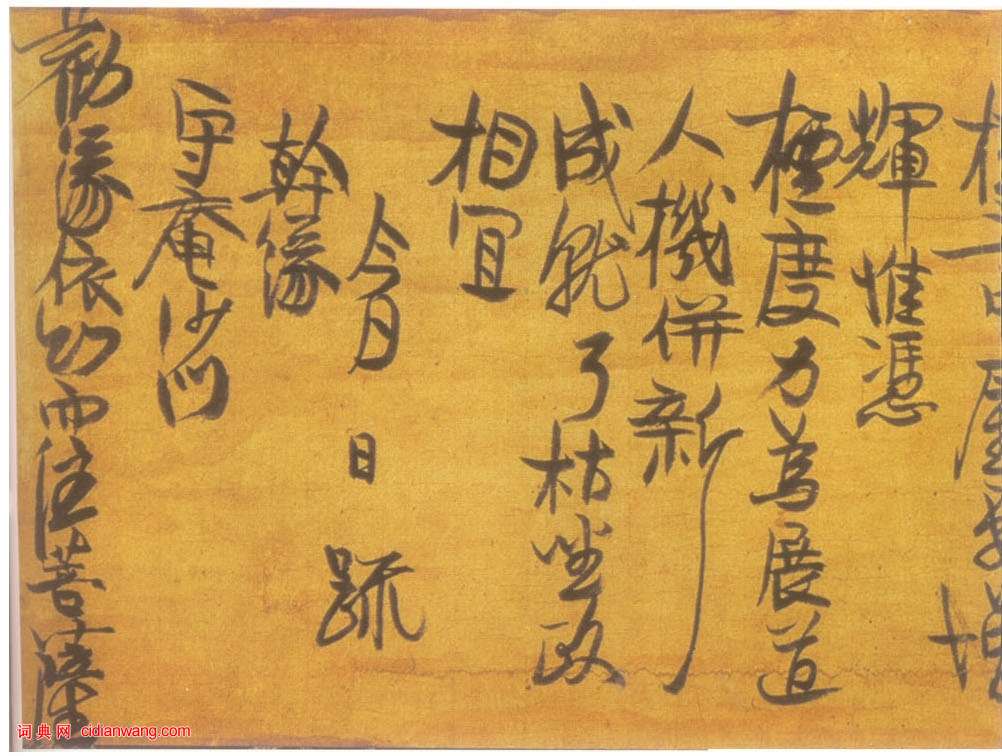 輝惟憑
檀度力為展道
人機併新
成就了枯坐政
相宜
今月日疏
幹緣
守庵沙門
勸緣依幻而住菩薩
词典网 cidianwang.com